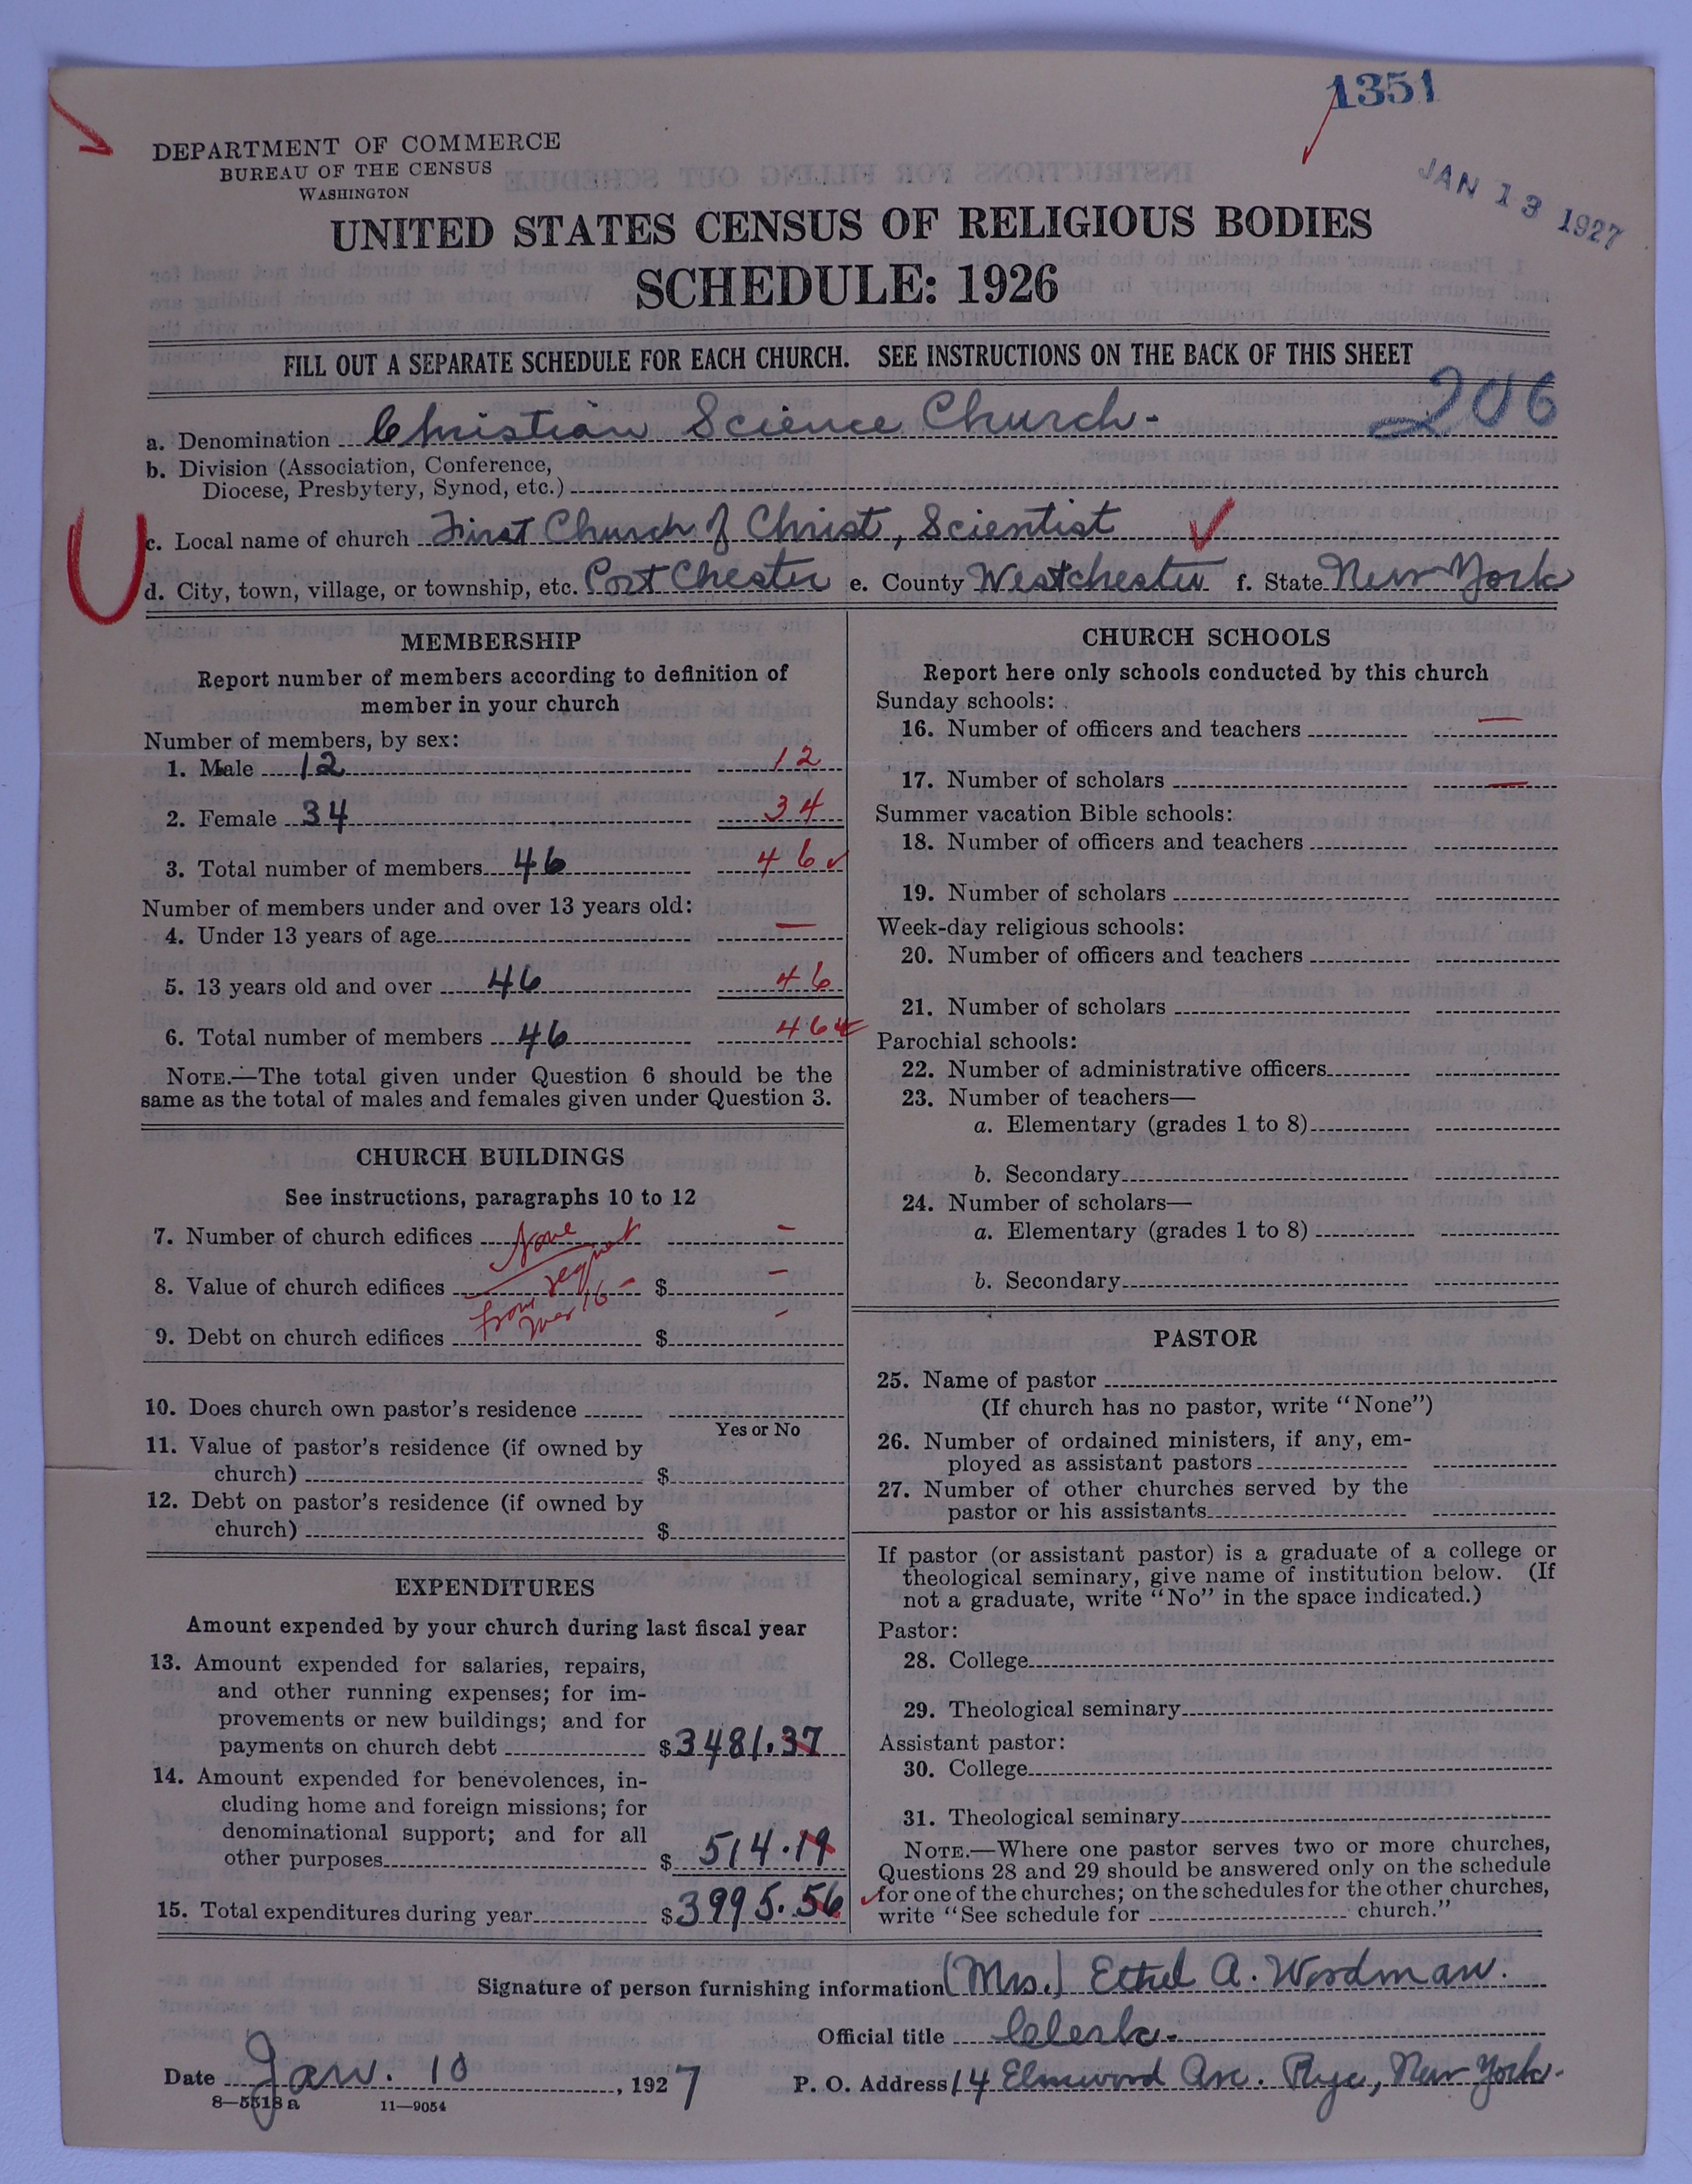 1351
DEPARTMENT OF COMMERCE
BUREAU OF THE CENSUS
WASHINGTON
JAN 13 1927
UNITED STATES CENSUS OF RELIGIOUS BODIES
SCHEDULE: 1926
FILL OUT A SEPARATE SCHEDULE FOR EACH CHURCH. SEE INSTRUCTIONS ON THE BACK OF THIS SHEET
206
a. Denomination Christian Science Church-
b. Division (Association, Conference,
Diocese, Presbytery, Synod, etc.)
c. Local name of church First Church of Christ, Scientist
d. City, town, village, or township, etc. Port Chester e. County Westchester f. State New York
MEMBERSHIP
Report number of members according to definition of
member in your church
Number of members, by sex:
1. Male 12 12
2. Female 34 34
3. Total number of members 46 46
Number of members under and over 13 years old:
4. Under 13 years of age —
5. 13 years old and over 46 46
6. Total number of members 46 46
NOTE.—The total given under Question 6 should be the
same as the total of males and females given under Question 3.
CHURCH BUILDINGS
See instructions, paragraphs 10 to 12
7. Number of church edifices None -
8. Value of church edifices $ -
from
9. Debt on church edifices $ -
10. Does church own pastor's residence
Yes or No
11. Value of pastor's residence (if owned by
church) $
12. Debt on pastor's residence (if owned by
church) $
EXPENDITURES
Amount expended by your church during last fiscal year
13. Amount expended for salaries, repairs,
and other running expenses; for im-
provements or new buildings; and for
payments on church debt $3481.37
14. Amount expended for benevolences, in-
cluding home and foreign missions; for
denominational support; and for all
other purposes $514.19
15. Total expenditures during year $3995.56
CHURCH SCHOOLS
Report here only schools conducted by this church
Sunday schools:
16. Number of officers and teachers —
17. Number of scholars —
Summer vacation Bible schools:
18. Number of officers and teachers
19. Number of scholars
Week-day religious schools:
20. Number of officers and teachers
21. Number of scholars
Parochial schools:
22. Number of administrative officers
23. Number of teachers—
a. Elementary (grades 1 to 8)
b. Secondary
24. Number of scholars—
a. Elementary (grades 1 to 8)
b. Secondary
PASTOR
25. Name of pastor
(If church has no pastor, write "None")
26. Number of ordained ministers, if any, em-
ployed as assistant pastors
27. Number of other churches served by the
pastor or his assistants
If pastor (or assistant pastor) is a graduate of a college or
theological seminary, give name of institution below. (If
not a graduate, write "No" in the space indicated.)
Pastor:
28. College
29. Theological seminary
Assistant pastor:
30. College
31. Theological seminary
NOTE.—Where one pastor serves two or more churches,
Questions 28 and 29 should be answered only on the schedule
for one of the churches; on the schedules for the other churches,
write "See schedule for church."
Signature of person furnishing information (Mrs.) Ethel A. Woodman.
Official title Clerk.
Date Jan. 10, 1927 P. O. Address 14 Elmwood Ave. Rye, New York.
8—5518a 11—9054